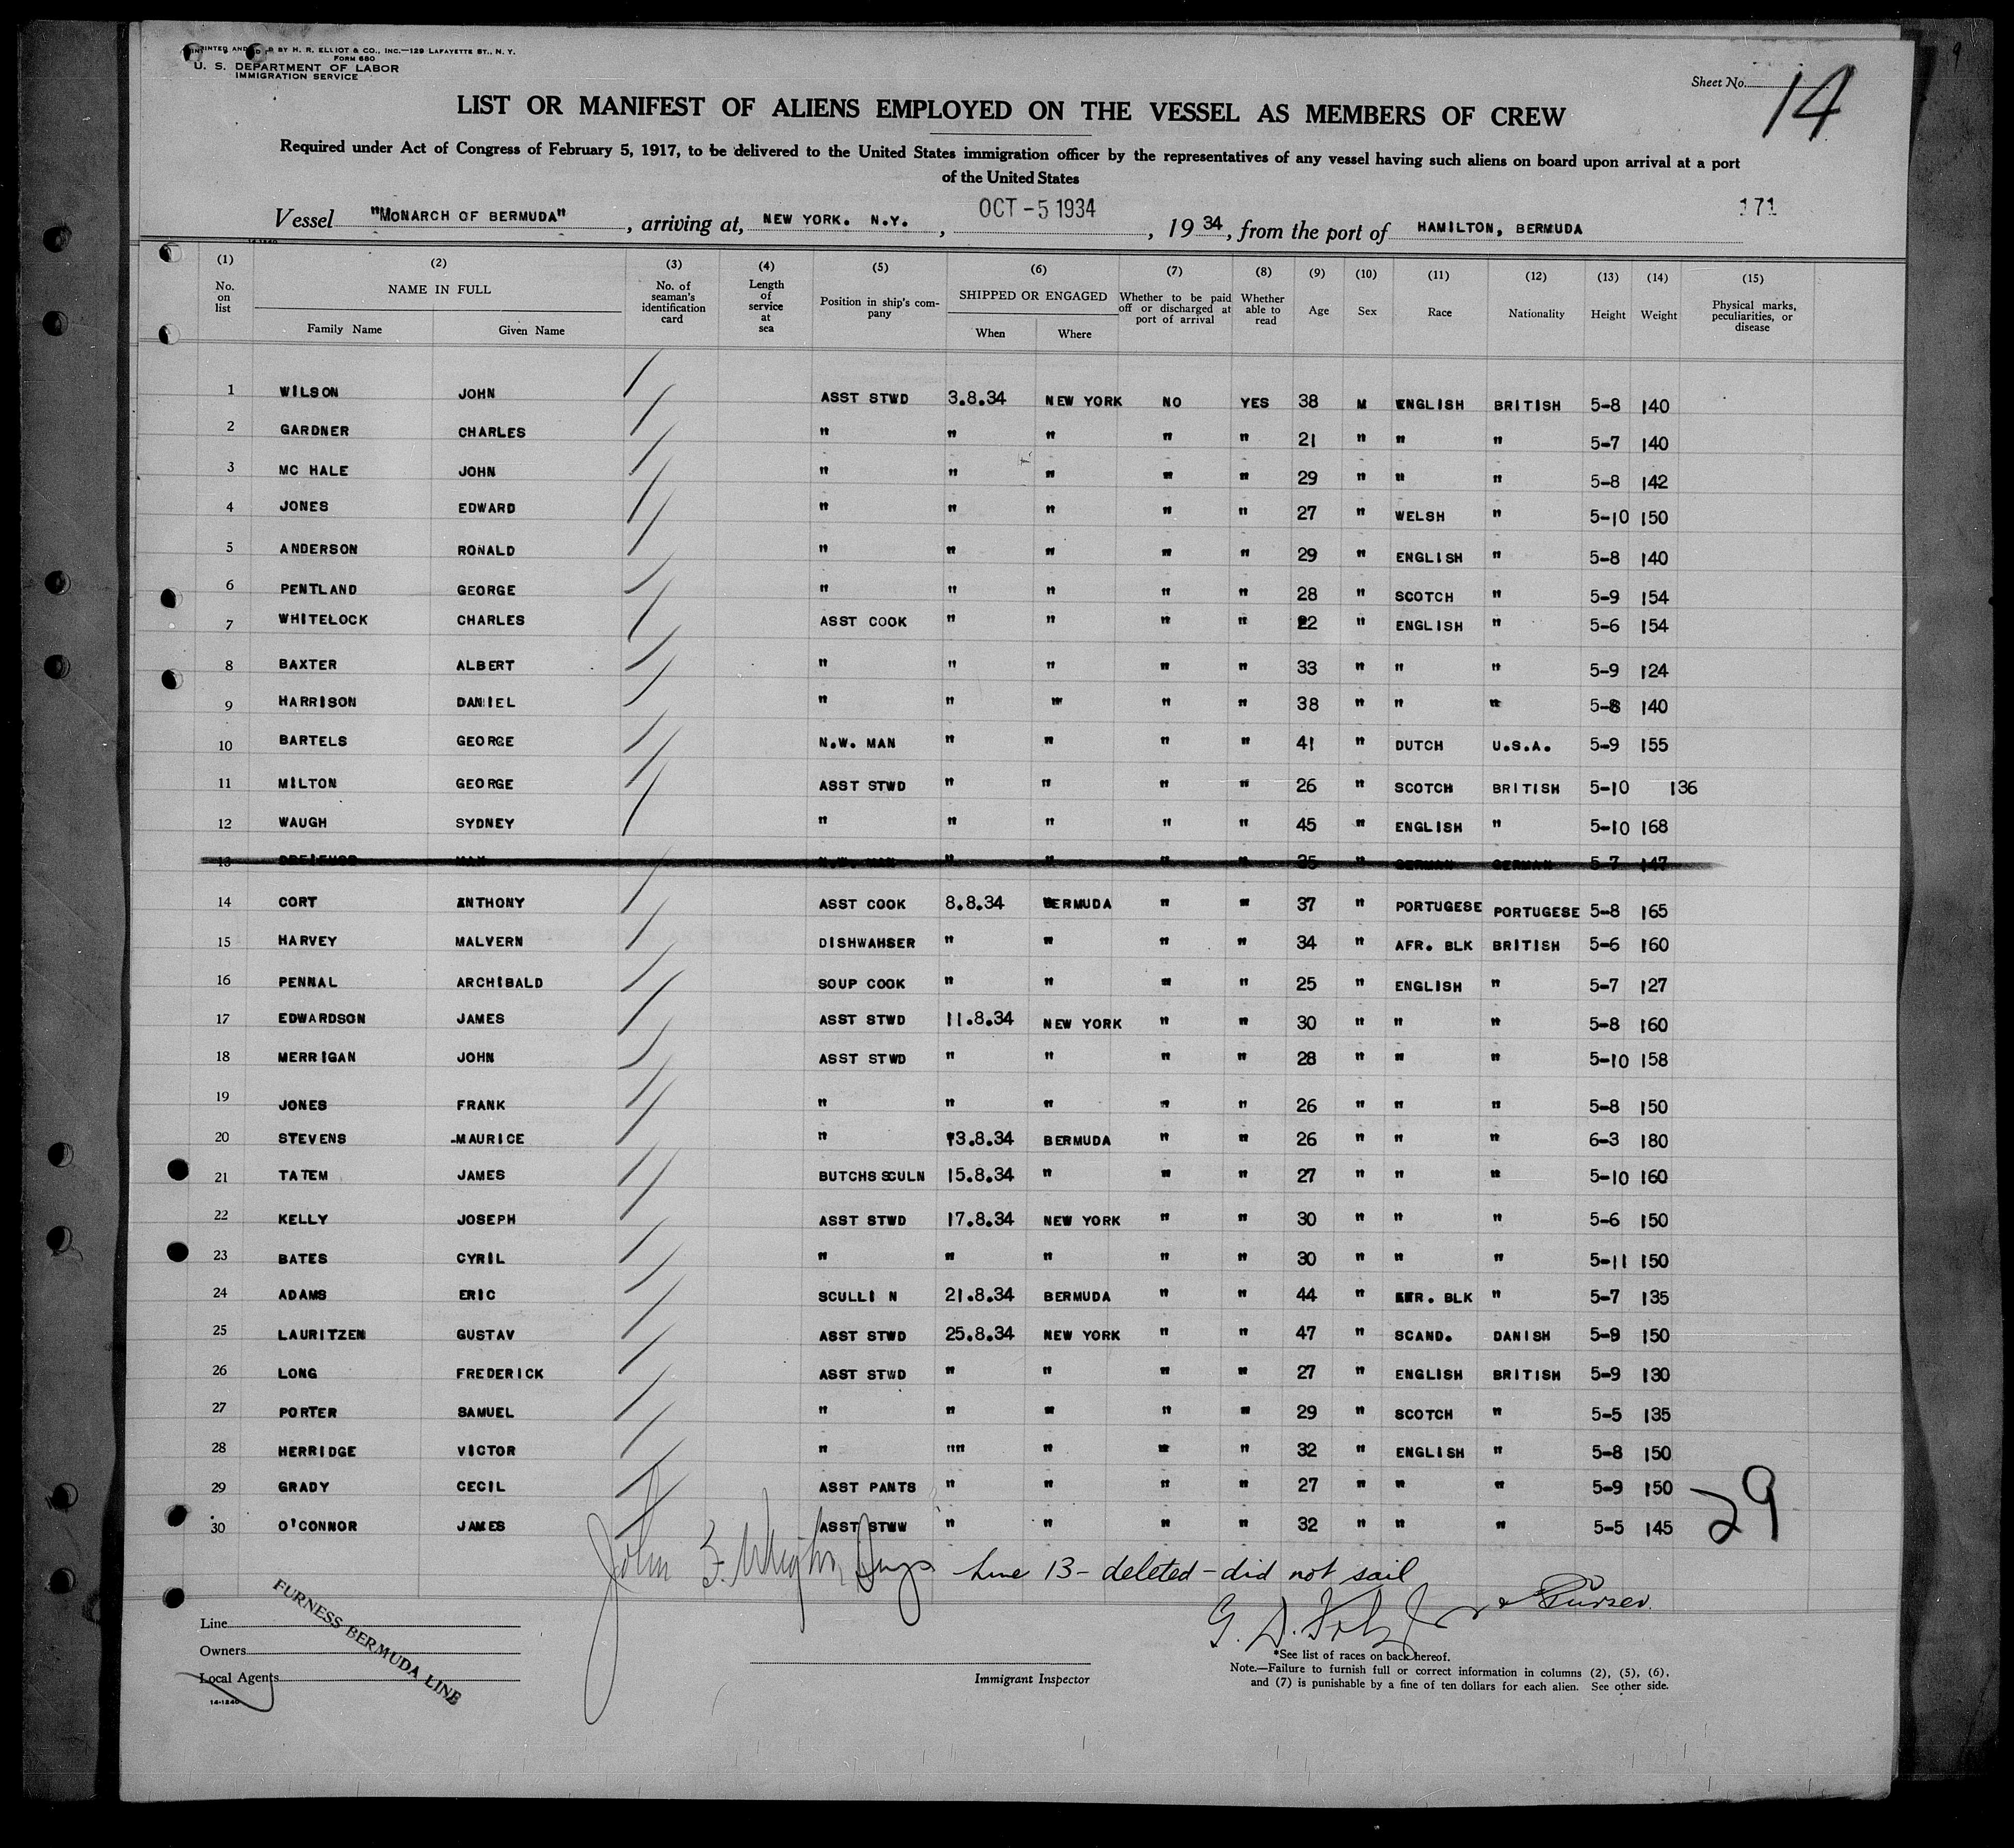 PRINTED AND BY H. R. ELLIOT & CO., INC.—129 LAFAYETTE ST., N. Y.
FORM 680
U. S. DEPARTMENT OF LABOR
IMMIGRATION SERVICE
Sheet No. 14
LIST OR MANIFEST OF ALIENS EMPLOYED ON THE VESSEL AS MEMBERS OF CREW
Required under Act of Congress of February 5, 1917, to be delivered to the United States immigration officer by the representatives of any vessel having such aliens on board upon arrival at a port
of the United States
171
Vessel "MONARCH OF BERMUDA", arriving at, NEW YORK. N.Y., OCT -5 1934, 19 34, from the port of HAMILTON, BERMUDA
14-1240
(1) (2) (3) (4) (5) (6) (7) (8) (9) (10) (11) (12) (13) (14) (15)
No. on list
NAME IN FULL
Family Name Given Name
No. of seaman's identification card
Length of service at sea
Position in ship's company
SHIPPED OR ENGAGED
When Where
Whether to be paid off or discharged at port of arrival
Whether able to read
Age Sex Race Nationality Height Weight
Physical marks, peculiarities, or disease
1 WILSON JOHN ASST STWD 3.8.34 NEW YORK NO YES 38 M ENGLISH BRITISH 5-8 140
2 GARDNER CHARLES " " " " " 21 " " " 5-7 140
3 MC HALE JOHN " " " " " 29 " " " 5-8 142
4 JONES EDWARD " " " " " 27 " WELSH " 5-10 150
5 ANDERSON RONALD " " " " " 29 " ENGLISH " 5-8 140
6 PENTLAND GEORGE " " " " " 28 " SCOTCH " 5-9 154
7 WHITELOCK CHARLES ASST COOK " " " " 22 " ENGLISH " 5-6 154
8 BAXTER ALBERT " " " " " 33 " " " 5-9 124
9 HARRISON DANIEL " " " " " 38 " " " 5-8 140
10 BARTELS GEORGE N.W. MAN " " " " 41 " DUTCH U.S.A. 5-9 155
11 MILTON GEORGE ASST STWD " " " " 26 " SCOTCH BRITISH 5-10 136
12 WAUGH SYDNEY " " " " " 45 " ENGLISH " 5-10 168
13 MAX N.W. MAN " " " " 35 " GERMAN GERMAN 5-7 147
14 CORT ANTHONY ASST COOK 8.8.34 BERMUDA " " 37 " PORTUGESE PORTUGESE 5-8 165
15 HARVEY MALVERN DISHWAHSER " " " " 34 " AFR. BLK BRITISH 5-6 160
16 PENNAL ARCHIBALD SOUP COOK " " " " 25 " ENGLISH " 5-7 127
17 EDWARDSON JAMES ASST STWD 11.8.34 NEW YORK " " 30 " " " 5-8 160
18 MERRIGAN JOHN ASST STWD " " " " 28 " " " 5-10 158
19 JONES FRANK " " " " " 26 " " " 5-8 150
20 STEVENS MAURICE " 13.8.34 BERMUDA " " 26 " " " 6-3 180
21 TATEM JAMES BUTCHS SCULN 15.8.34 " " " 27 " " " 5-10 160
22 KELLY JOSEPH ASST STWD 17.8.34 NEW YORK " " 30 " " " 5-6 150
23 BATES CYRIL " " " " " 30 " " " 5-11 150
24 ADAMS ERIC SCULLI N 21.8.34 BERMUDA " " 44 " AFR. BLK " 5-7 135
25 LAURITZEN GUSTAV ASST STWD 25.8.34 NEW YORK " " 47 " SCAND. DANISH 5-9 150
26 LONG FREDERICK ASST STWD " " " " 27 " ENGLISH BRITISH 5-9 130
27 PORTER SAMUEL " " " " " 29 " SCOTCH " 5-5 135
28 HERRIDGE VICTOR " "" " " " 32 " ENGLISH " 5-8 150
29 GRADY CECIL ASST PANTS " " " " 27 " " " 5-9 150
30 O'CONNOR JAMES ASST STWW " " " " 32 " " " 5-5 145
29
John Line 13 - deleted - did not sail
G. D. Purser.
Line
Owners
Local Agents
FURNESS BERMUDA LINE
14-1240
Immigrant Inspector
*See list of races on back hereof.
Note.—Failure to furnish full or correct information in columns (2), (5), (6),
and (7) is punishable by a fine of ten dollars for each alien. See other side.